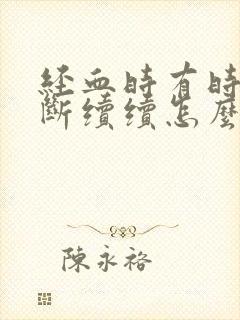 經血時有時
斷續續怎麼
陳永裕